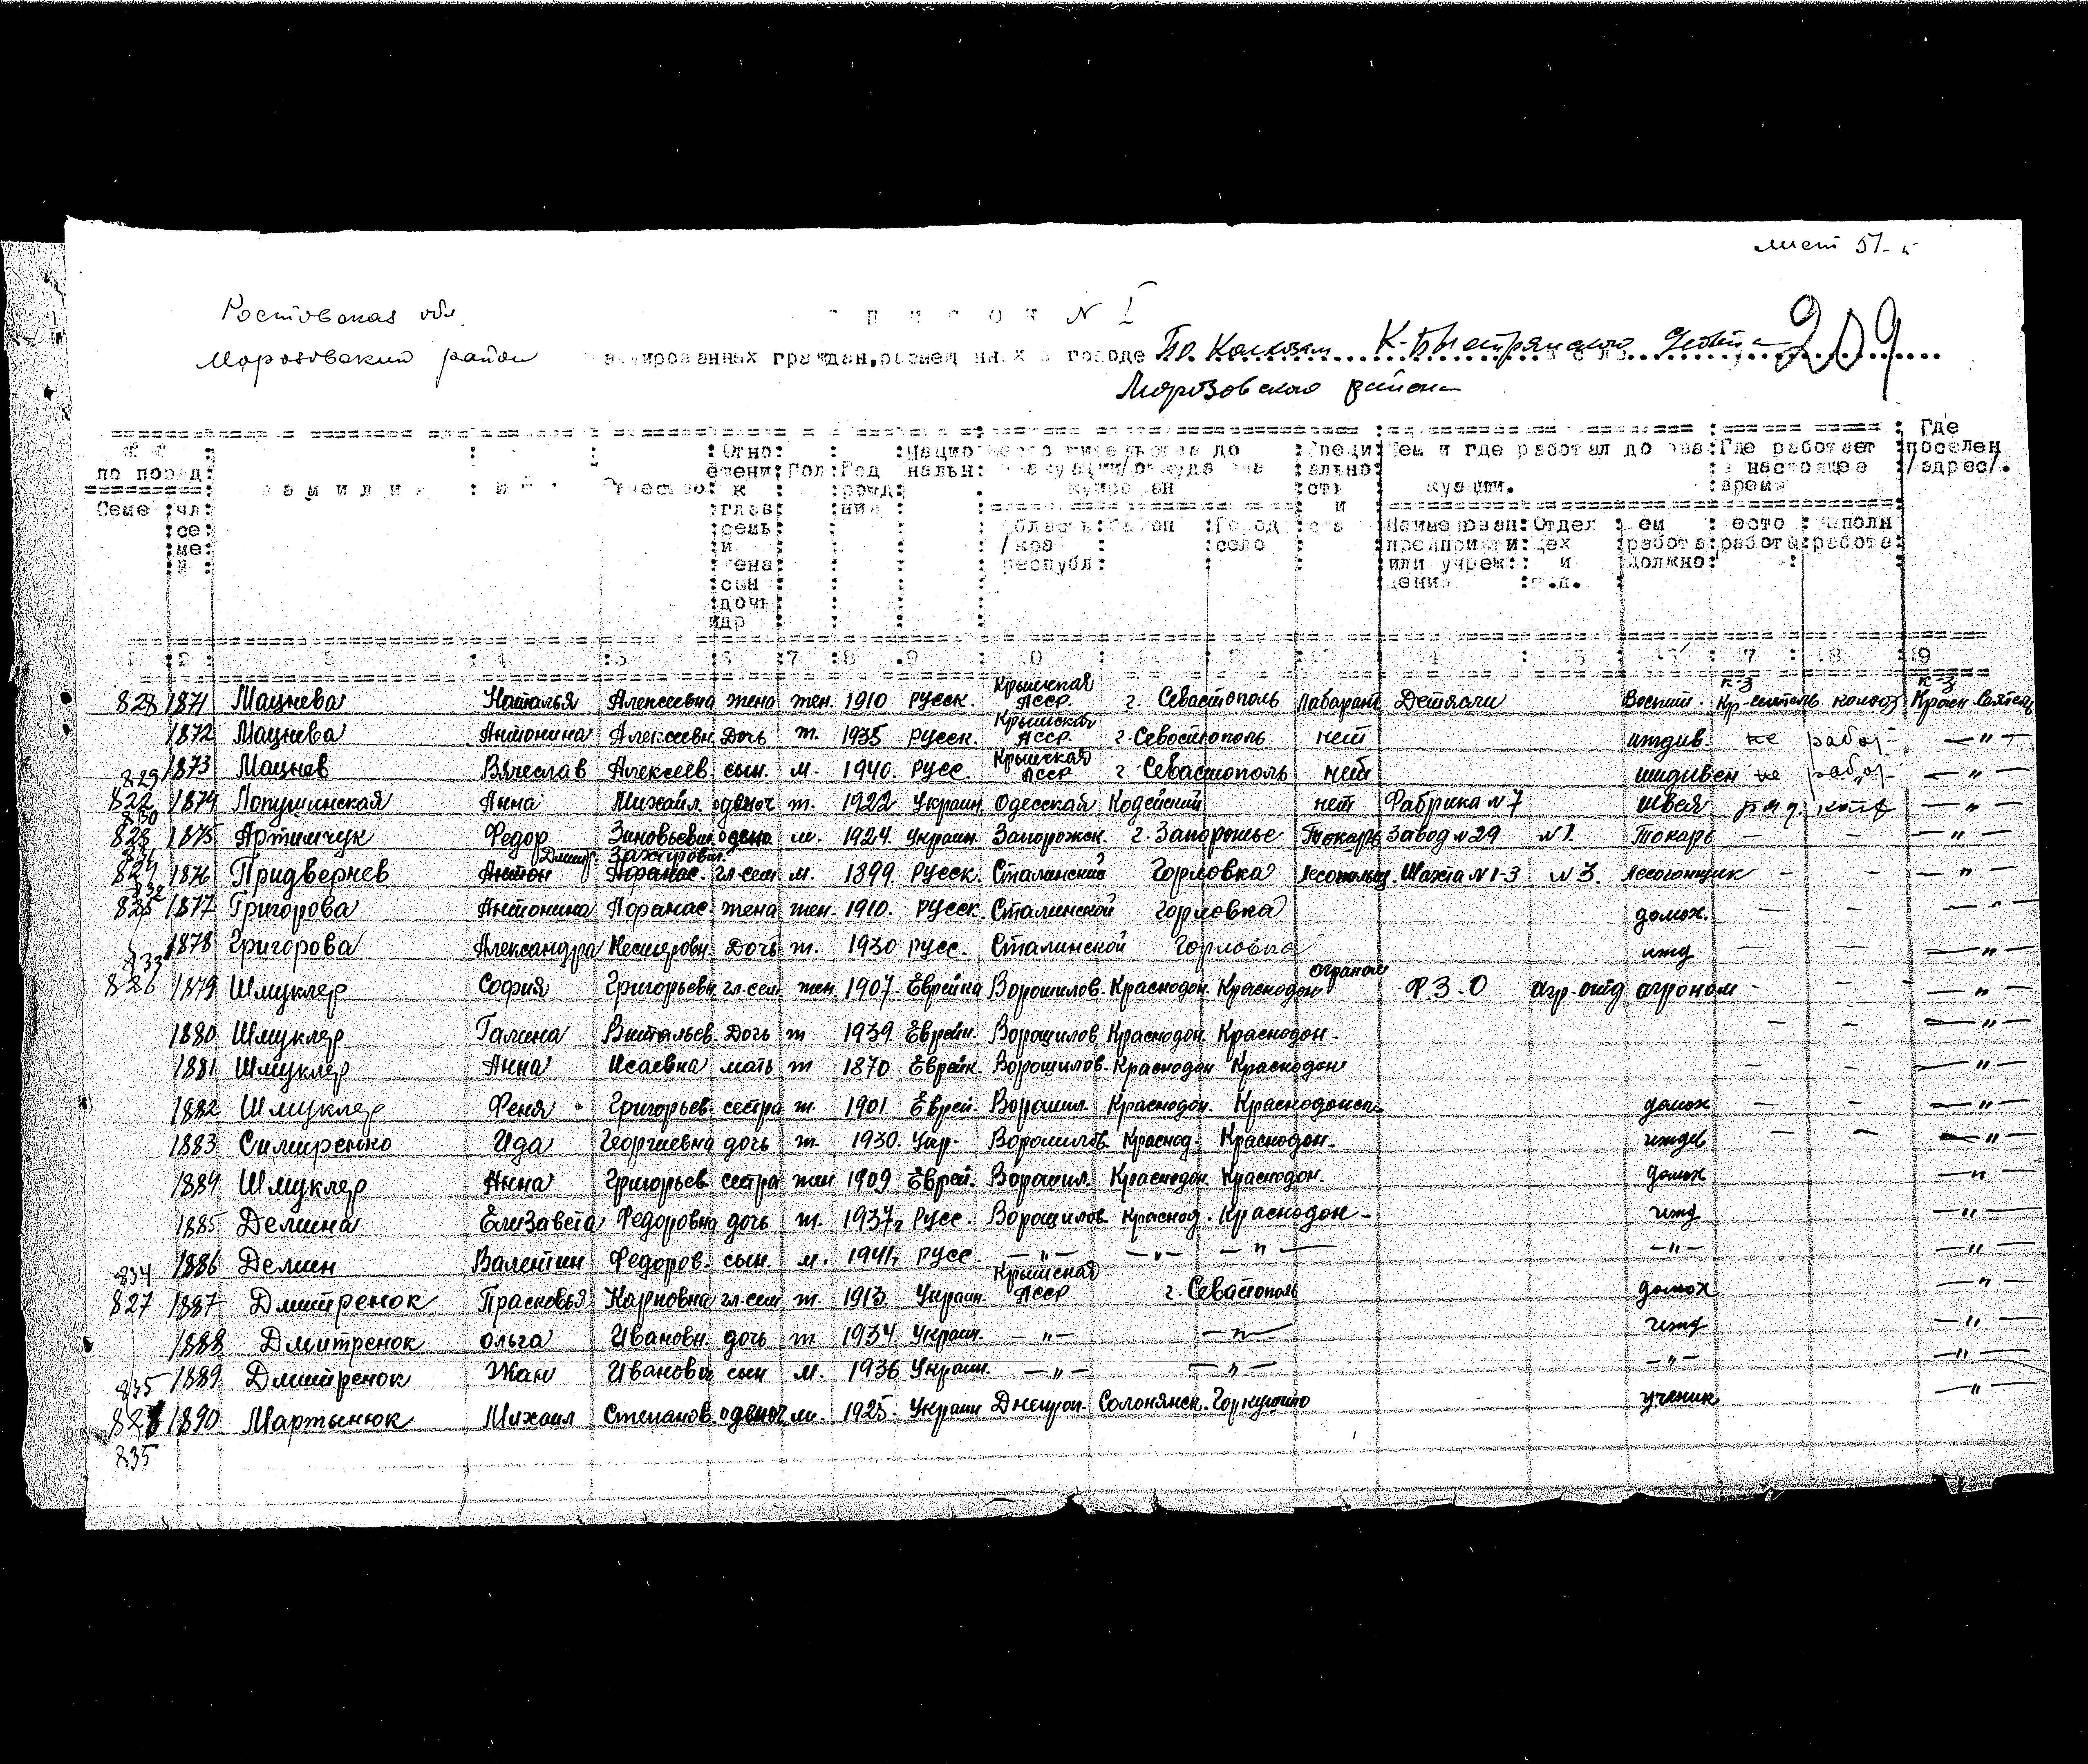 лист 51-
Ростовская обл.
Морозовский район
список N I
эвакуированных граждан, размещенных в городе По Колхозам К-Быстрянского 209
Морозовского района
по поряд: Отно: Пол: Год Нацио до Специ: Чем и где работал до эва: Где работает Где
Семе чл се ме и фамилия имя отчество шени к глав семьи жена сын дочь идр рожд ния нальн: куирован ально сть и куации. в настоящее время поселен /адрес/.
область /кра республ: район город село Наименован: предприяти или учрежд Отдел цех и т.д. работа должно: место работы выполн работа
1 2 3 4 5 6 7 8 9 10 12 13 14 15 16 17 18 19
828 1871 Мацнева Наталья Алексеевна жена жен. 1910 русск. Крымская АССР г. Севастополь Лаборант Детясли Воспит. к-з Кр-сеятель колхоз к-з Красн Сеятель
1872 Мацнева Антонина Алексеевн. Дочь ж. 1935 русск. Крымская АССР г. Севастополь нет иждив. не работ. — " —
829 1873 Мацнев Вячеслав Алексеев. сын. м. 1940. русс. Крымская АССР г Севастополь нет иждивен не работ — " —
822 1874 Лопушинская Анна Михайл. одиноч ж. 1922 Украин. Одесская Кодейский нет Фабрика №7 швея ряд. — " —
830
823 1875 Артимчук Федор Зиновьевич м. 1924. Украин. Запорожск. г. Запорожье Токарь Завод №29 №1. Токарь — — — " —
831 Дмитр. Захарович
824 1876 Придвернев Антон Афанас. гл.сем. м. 1899 русск. Сталинский Горловка Шахта №1-3 №3. Лесогонщик — — — " —
832
825 1877 Григорова Антонина Афанас. жена жен. 1910. русск Сталинской Горловка домох. — — — " —
1878 Григорова Александра Дочь ж. 1930 русс. Сталинской Горловка ижд — — — " —
833
826 1879 Шмуклер София Григорьевн гл.сем. жен. 1907. Еврейка Ворошилов. Краснодон. Краснодон агроном Ф.З.О агр. отд агроном — — — " —
1880 Шмуклер Галина Витальев. Дочь ж 1939. Еврейк. Ворошилов Краснодон. Краснодон. — — — " —
1881 Шмуклер Анна Исаевна мать ж 1870 Еврейк. Ворошилов. Краснодон Краснодон — — — " —
1882 Шмуклер Феня Григорьев. сестра ж. 1901 Еврей. Ворошил. Краснодон. Краснодонск. домох — — — " —
1883 Симиренко Ида Георгиевна дочь ж. 1930. Укр. Ворошилов Краснод. Краснодон. иждив — — — " —
1884 Шмуклер Анна Григорьев. сестра жен 1909 Еврей. Ворошил. Краснодон. Краснодон. домох — " —
1885 Демина Елизавета Федоровна дочь ж. 1937г русс. Ворошилов Краснод. Краснодон. ижд — " —
834 1886 Демин Валентин Федоров. сын. м. 1941г русс. — " — — " — — " — — " — — " —
827 1887 Дмитренок Прасковья Карповна гл.сем ж. 1913. Украин. Крымская АССР г. Севастополь домох — " —
1888 Дмитренок Ольга Ивановн. дочь ж 1934. Украин. — " — — " — ижд — " —
835 1889 Дмитренок Жан Иванович сын м. 1936 Украин. — " — — " — — " — — " —
828 1890 Мартынюк Михаил Степанов. одиноч м. 1925. Украин Днепроп. Солонянск. ученик — " —
835